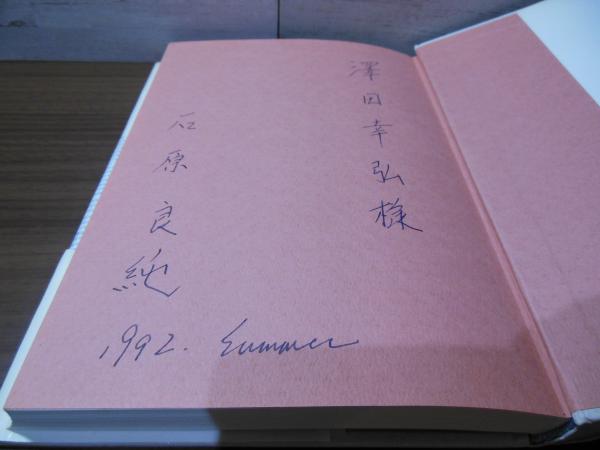 澤田幸弘様
石原良純
1992. Summer